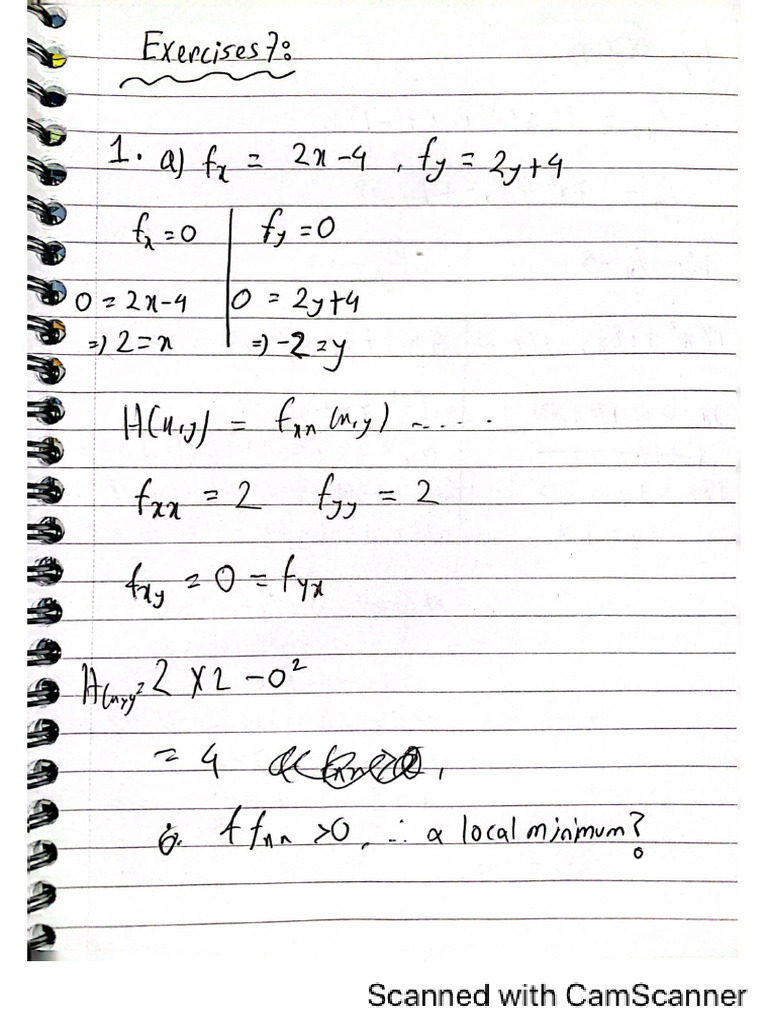 Exercises 7:
1. a) fx = 2x-4 , fy = 2y+4
fx = 0 | fy = 0
0 = 2x-4 | 0 = 2y+4
=) 2 = x | =) -2 = y
H(x,y) = fxx(x,y) - - . . .
fxx = 2 fyy = 2
fxy = 0 = fyx
H(x,y) = 2 X 2 - 0²
= 4
& fxx >0, ∴ a local minimum?
Scanned with CamScanner